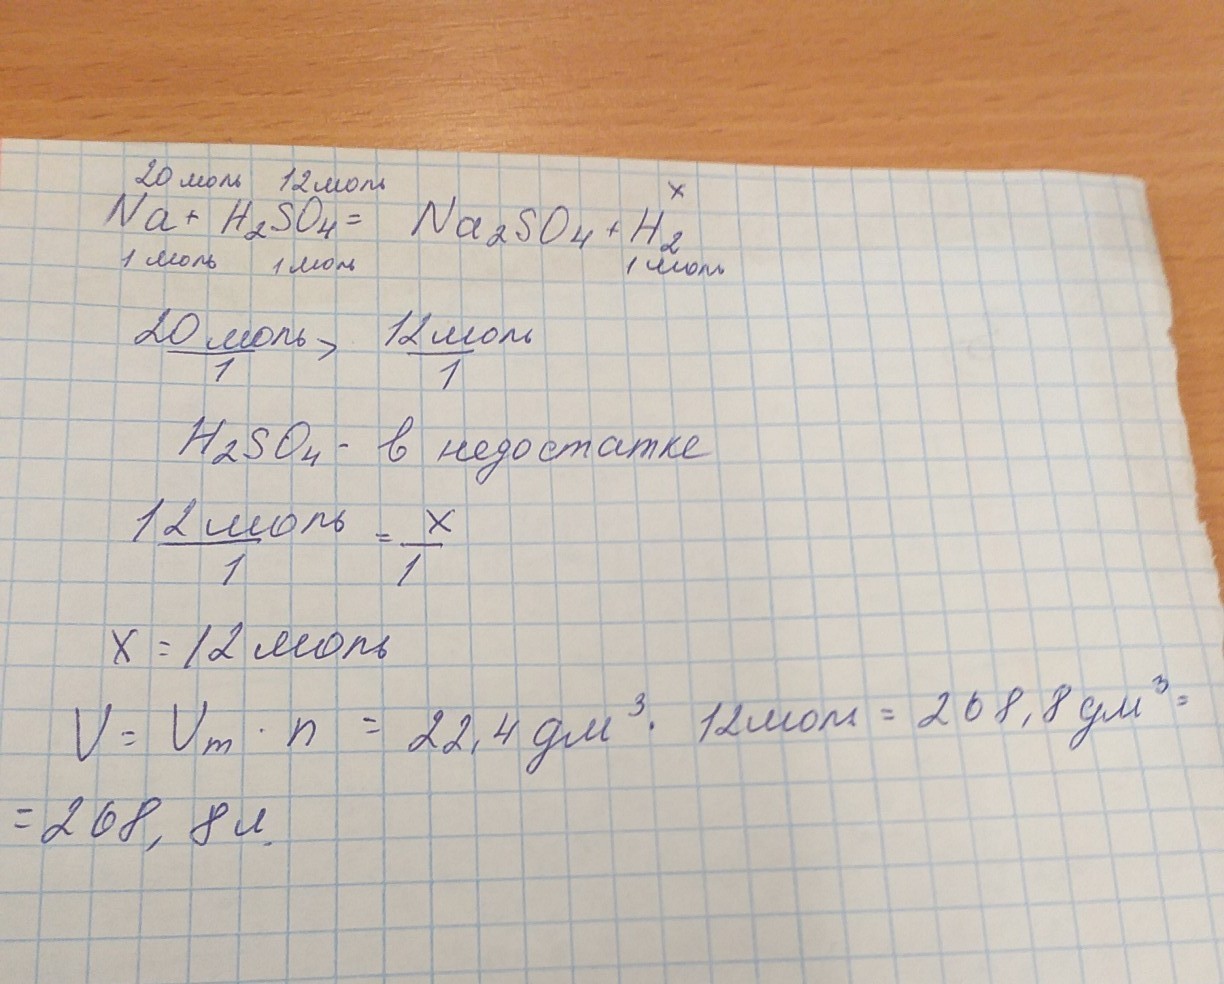 20 моль 12 моль x
Na + H₂SO₄ = Na₂SO₄ + H₂
1 моль 1 моль 1 моль
20 моль > 12 моль
1 1
H₂SO₄ - в недостатке
12 моль = x
1 1
x = 12 моль
V = Vm · n = 22,4 дм³ · 12 моль = 268,8 дм³ =
= 268,8 л.